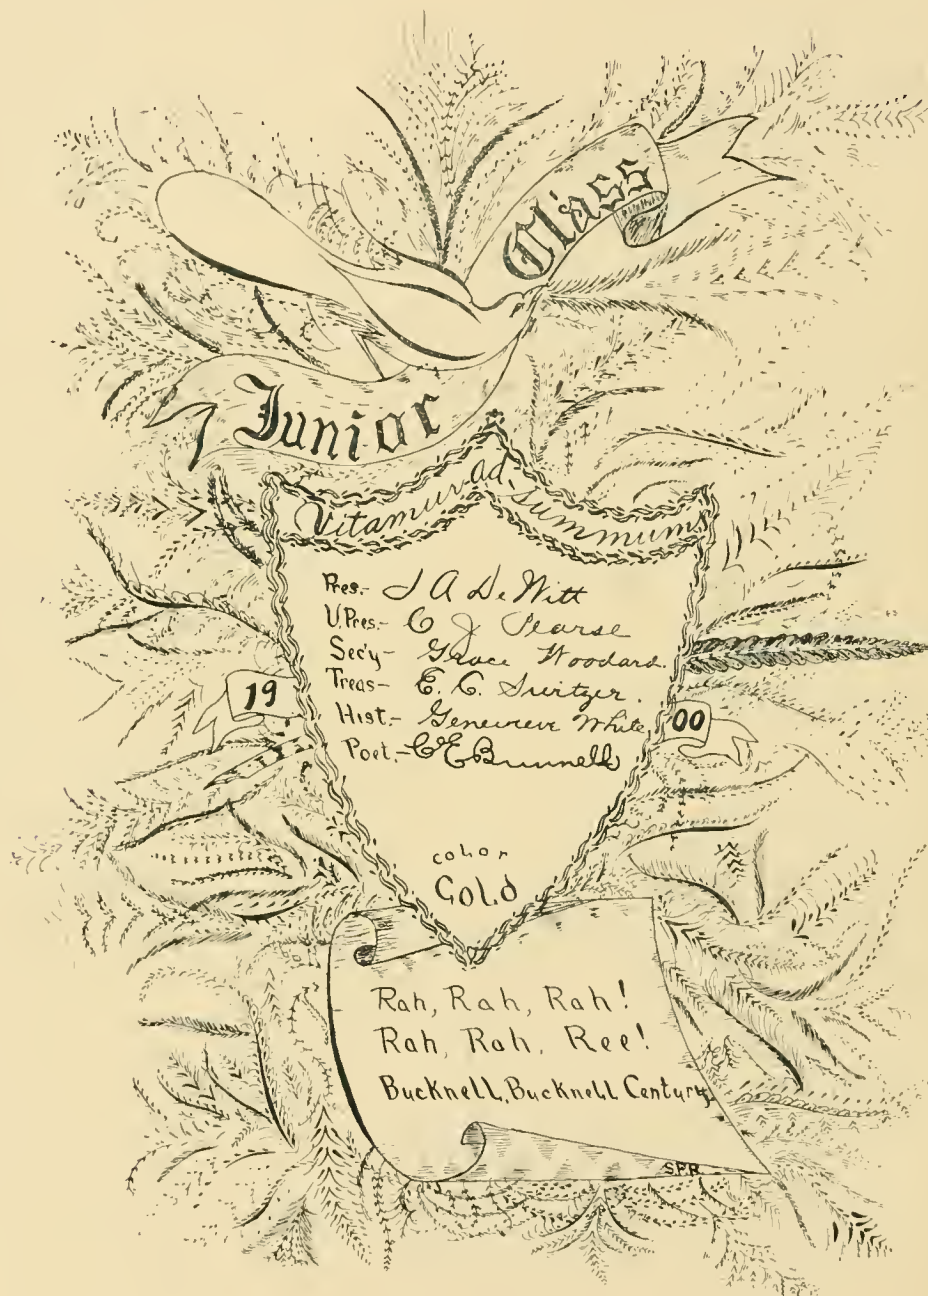 Junior Class
Vitamur ad summum
Pres.- J A De Witt
V.Pres.- C J Pearse
Sec'y- Grace Woodard.
Treas- E. C. Switzer.
Hist.- Genevieve White
Poet.- C E Bunnell
19 00
color
Gold
Rah, Rah, Rah!
Rah, Rah, Ree!
Bucknell, Bucknell Century.
SFR